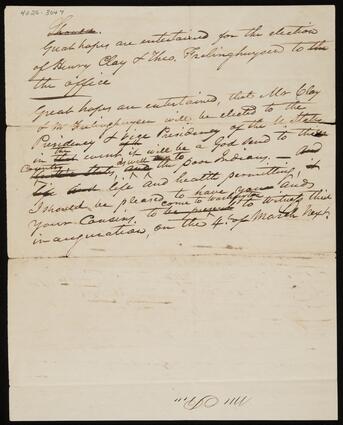 4026.3047
Great hopes are entertained for the election
of Henry Clay & Theo. Frelinghuysen to the
the office
Great hopes are entertained, that Mr Clay
& Mr Frelinghuysen will be elected to the
Presidency & Vice Presidency of the U. States
in that event it will be a God send to the
Country as well as to the poor Indians. And
life and health permitting, if
I should be pleased to have you and
your Cousins to come to Washington to witness this
inauguration, on the 4. of March Next.